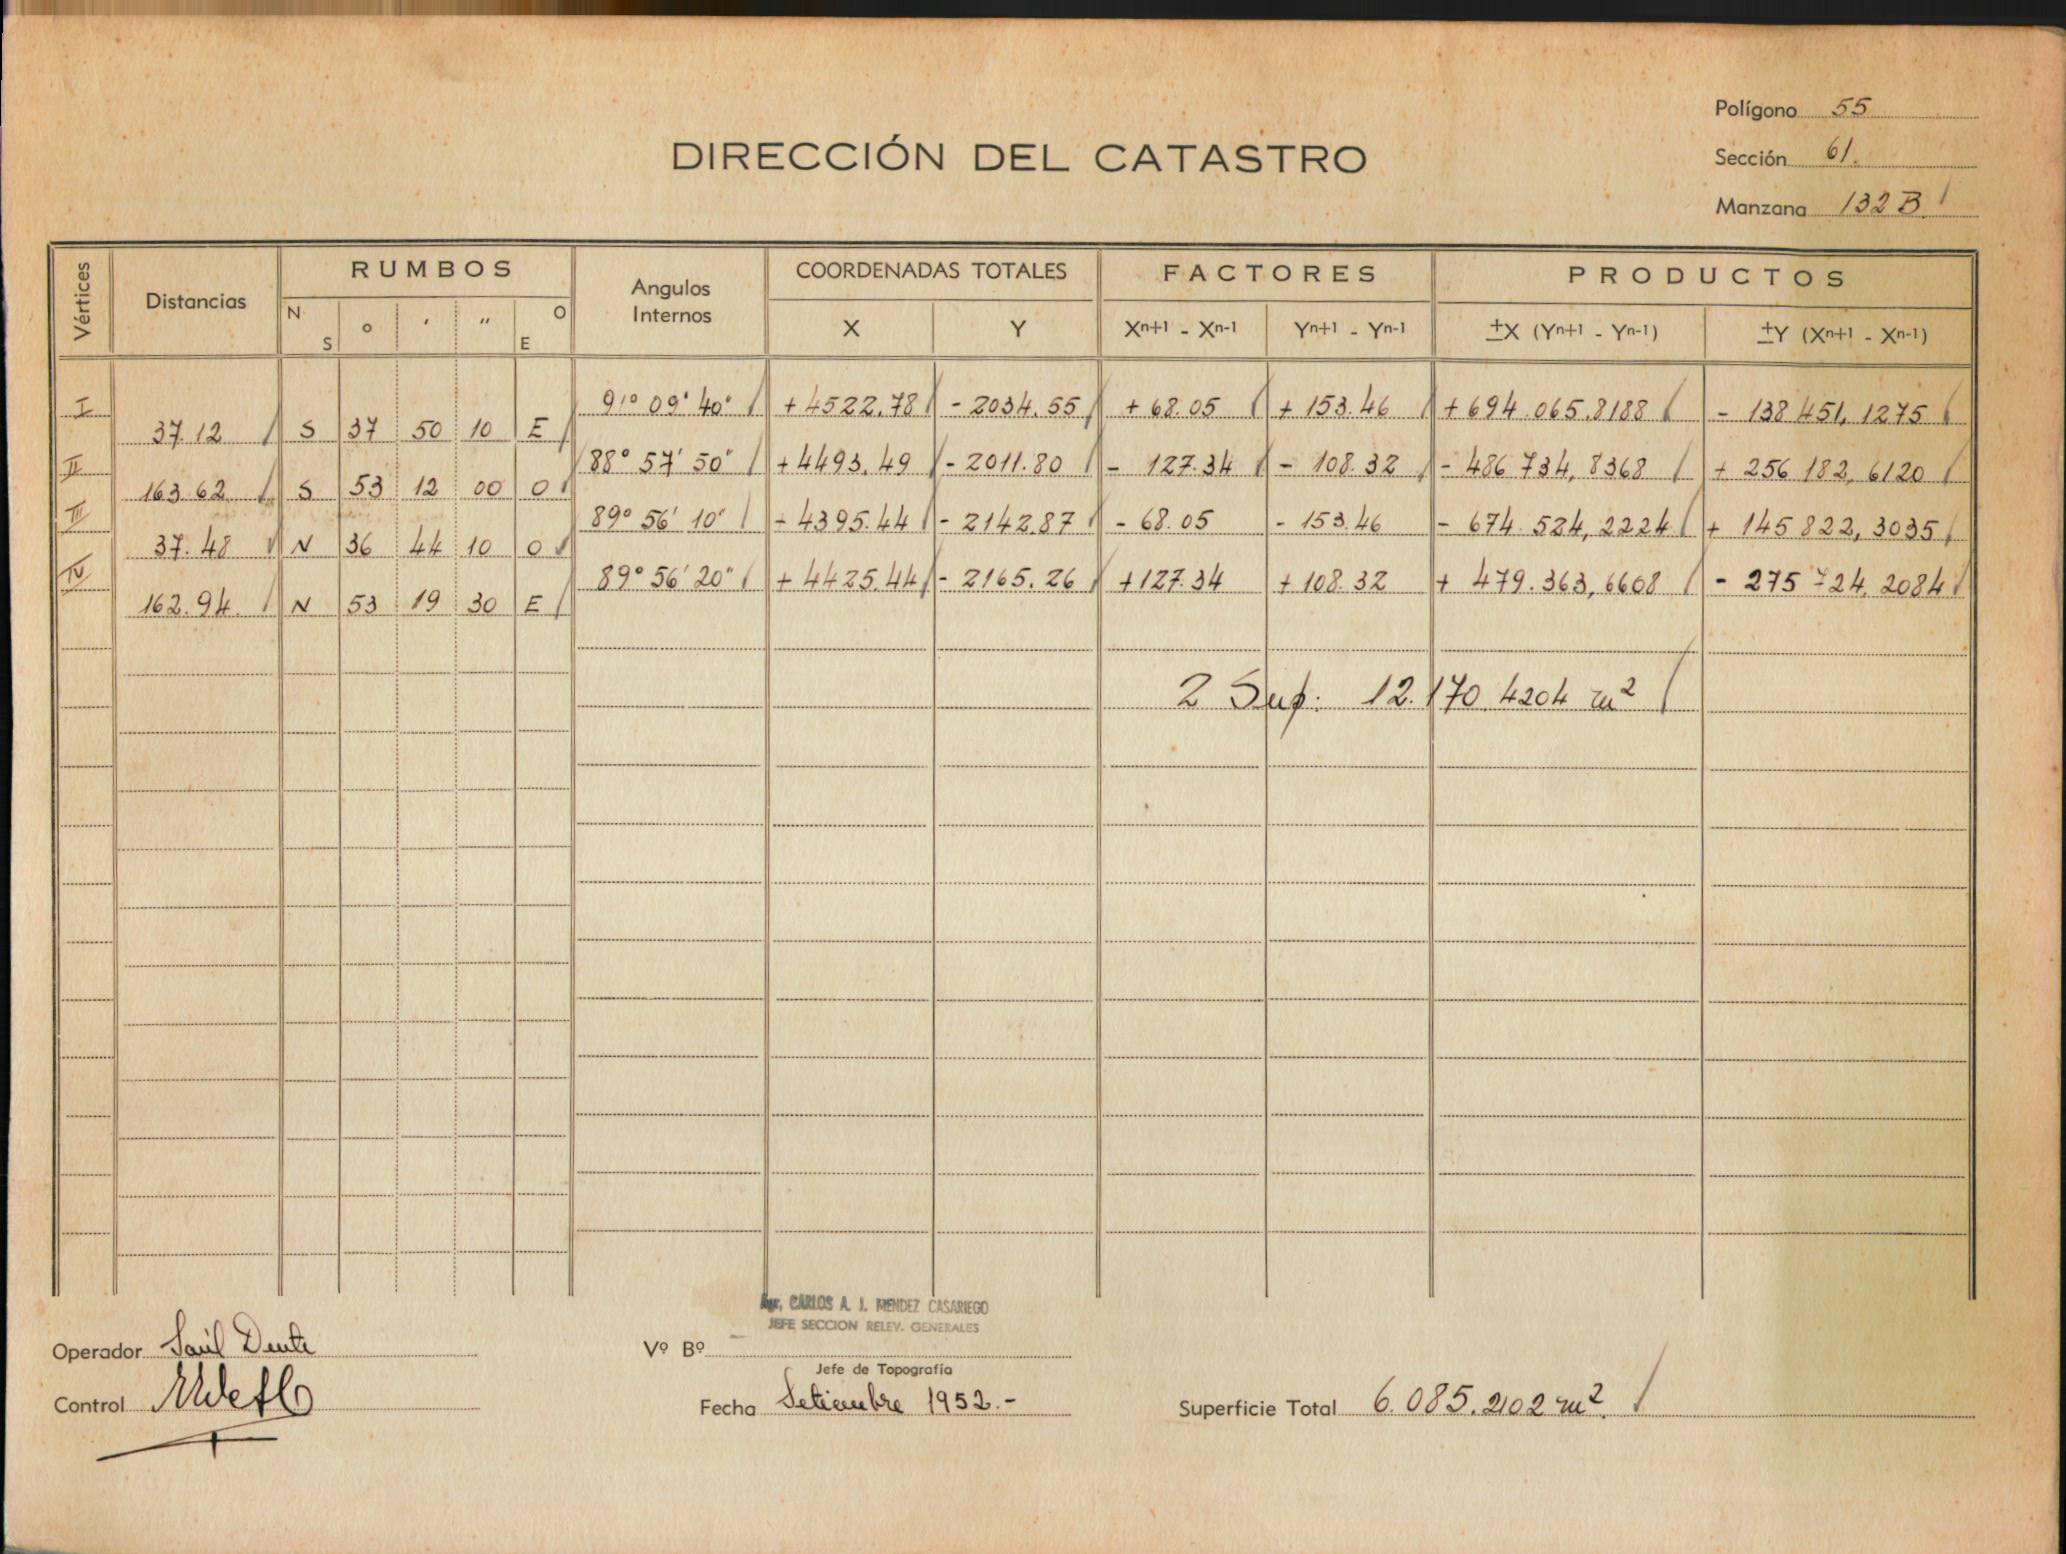 Polígono 55
Sección 61.
Manzana 132 B
DIRECCIÓN DEL CATASTRO
Vértices Distancias RUMBOS Angulos Internos COORDENADAS TOTALES FACTORES PRODUCTOS
N S ° ′ ″ O E X Y Xn+1 - Xn-1 Yn+1 - Yn-1 ±X (Yn+1 - Yn-1) ±Y (Xn+1 - Xn-1)
I 91° 09' 40" + 4522.78 - 2034.55 + 68.05 + 153.46 + 694.065.8188 - 138 451, 1275
37.12 S 37 50 10 E
II 88° 57' 50" + 4493.49 - 2011.80 - 127.34 - 108.32 - 486 734, 8368 + 256 182, 6120
163.62 S 53 12 00 O
III 89° 56' 10" + 4395.44 - 2142.87 - 68.05 - 153.46 - 674.524, 2224 + 145 822, 3035
37.48 N 36 44 10 O
IV 89° 56' 20" + 4425.44 - 2165.26 + 127.34 + 108.32 + 479.363, 6608 - 275 724, 2084
162.94. N 53 19 30 E
2 Sup: 12.170.4204 m²
Agr. CARLOS A. J. MENDEZ CASARIEGO
JEFE SECCION RELEV. GENERALES
Operador Saúl Dente
Vº Bº
Jefe de Topografía
Control
Fecha Setiembre 1952.-
Superficie Total 6.085.2102 m².